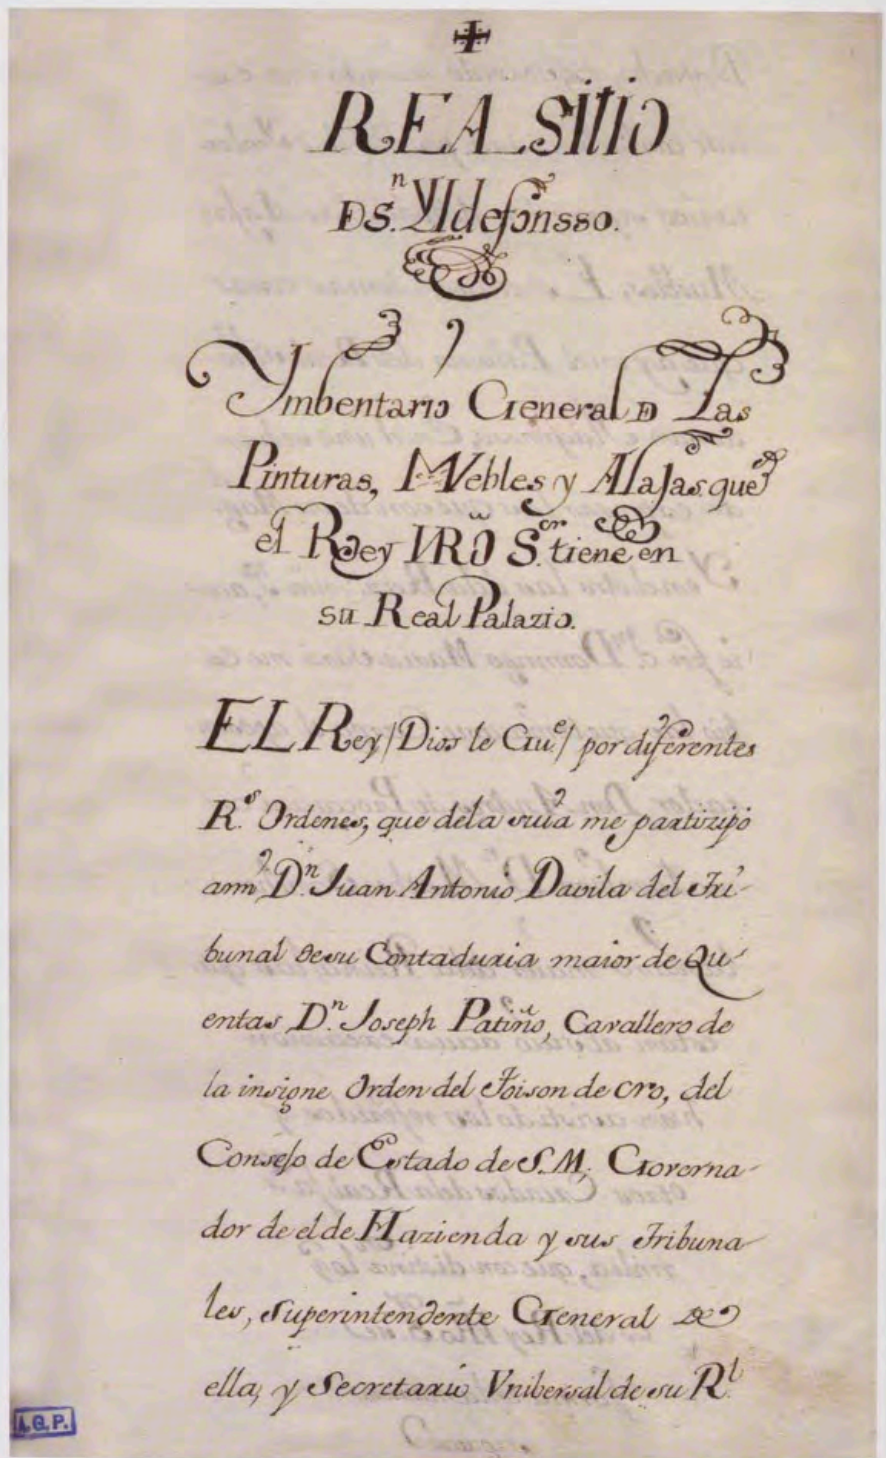 REAL SITIO
DE S.n YLdefonsso.
Ymbentario General DE Las
Pinturas, MVebles y Alajas que
el Rey NRÕ S.or tiene en
su Real Palazio.
EL Rey / Dios le Gu.e / por diferentes
R.s Ordenes, que dela suia me partizipó
ami, D.n Juan Antonio Davila del Tri-
bunal de su Contaduria maior de Qu-
entas D.n Joseph Patiño, Cavallero de
la insigne Orden del Toison de oro, del
Consejo de Estado de S.M, Governa-
dor de el de Hazienda y sus Tribuna-
les, Superintendente General de
ella, y Secretario Vnibersal de su R.l
A.G.P.